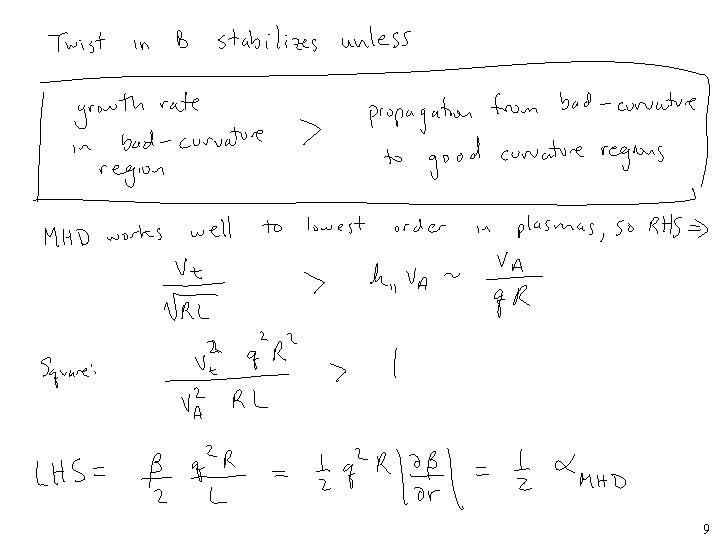 Twist in B stabilizes unless
growth rate in bad-curvature region > propagation from bad-curvature to good curvature regions
MHD works well to lowest order in plasmas, so RHS ⇒
v_t / √(RL) > k_∥ v_A ~ v_A / (q R)
Square: (v_t² q² R²) / (v_A² R L) > 1
LHS = (β/2) (q² R / L) = (1/2) q² R |∂β/∂r| = (1/2) α_MHD
9